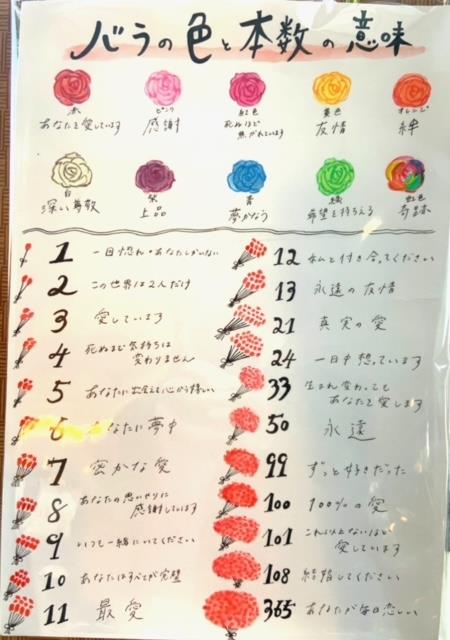 バラの色と本数の意味
赤
あなたを愛しています
ピンク
感謝
紅色
死ぬほど
焦がれています
黄色
友情
オレンジ
絆
白
深い尊敬
紫
上品
青
夢かなう
緑
希望を持ちえる
虹色
奇跡
1 一目惚れ・あなたしかいない
2 この世界は2人だけ
3 愛しています
4 死ぬまで気持ちは
変わりません
5 あなたに出会えて心から嬉しい
6 あなたに夢中
7 密かな愛
8 あなたの思いやりに
感謝しています
9 いつも一緒にいてください
10 あなたはすべてが完璧
11 最愛
12 私と付き合ってください
13 永遠の友情
21 真実の愛
24 一日中想っています
33 生まれ変わっても
あなたを愛します
50 永遠
99 ずっと好きだった
100 100%の愛
101 これ以上ないほど
愛しています
108 結婚してください
365 あなたが毎日恋しい